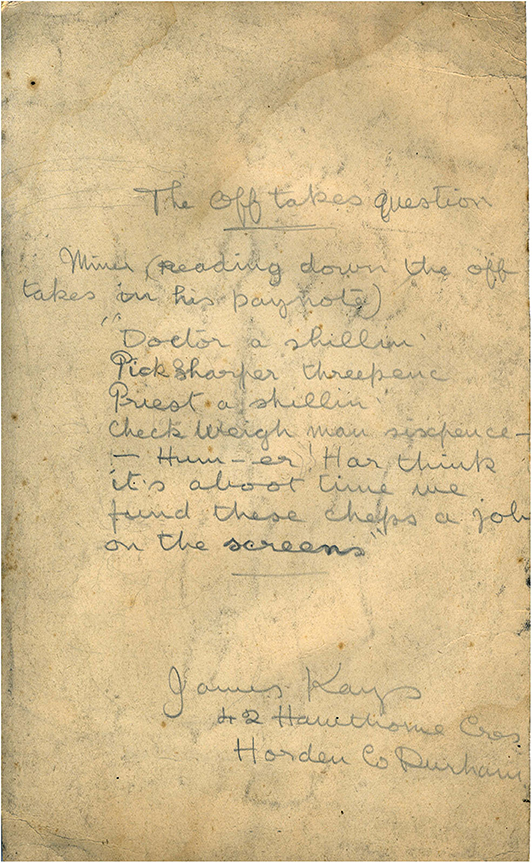 The Off takes question
Miner (reading down the off
takes on his paynote)
"Doctor a shillin'
Pick Sharper threepenc
Priest a shillin'
Check Weigh man sixpence –
– Hum – er! Har think
it's aboot time we
fund these cheps a job
on the screens"
James Kays
42 Hawthorne Cres
Horden Co Durham